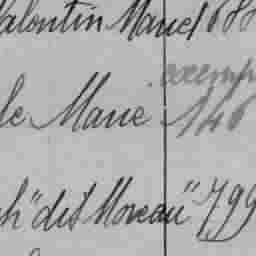 Valentin Marcel 688
exemp
le Marie 146
ch "dit Moreau" 799